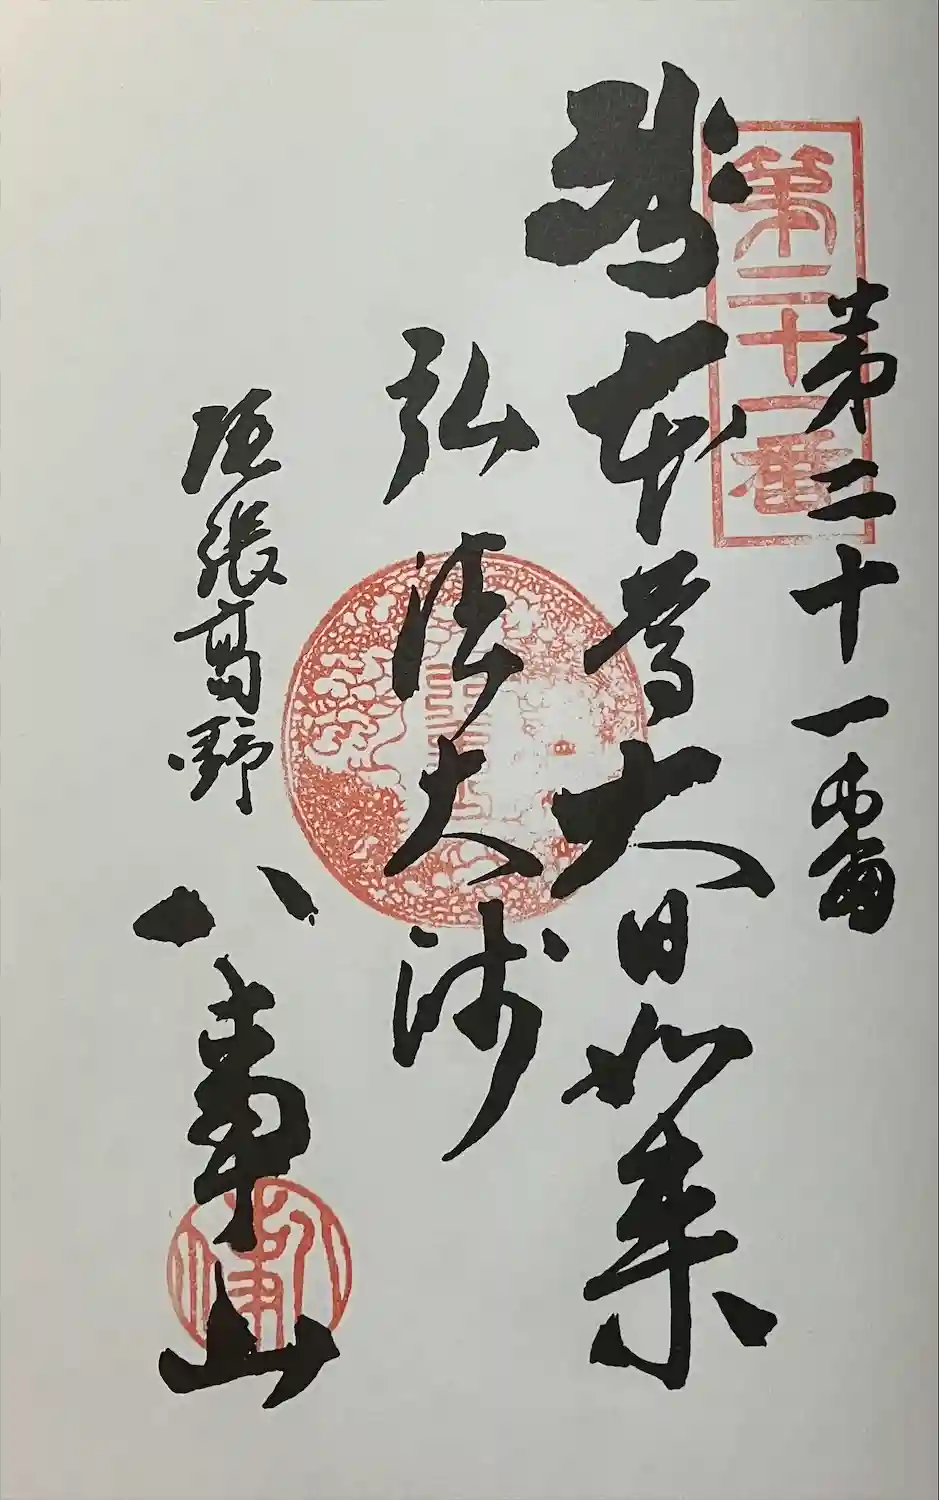 第二十一番
第二十一番
本尊大日如来
弘法大師
尾張高野
八事山